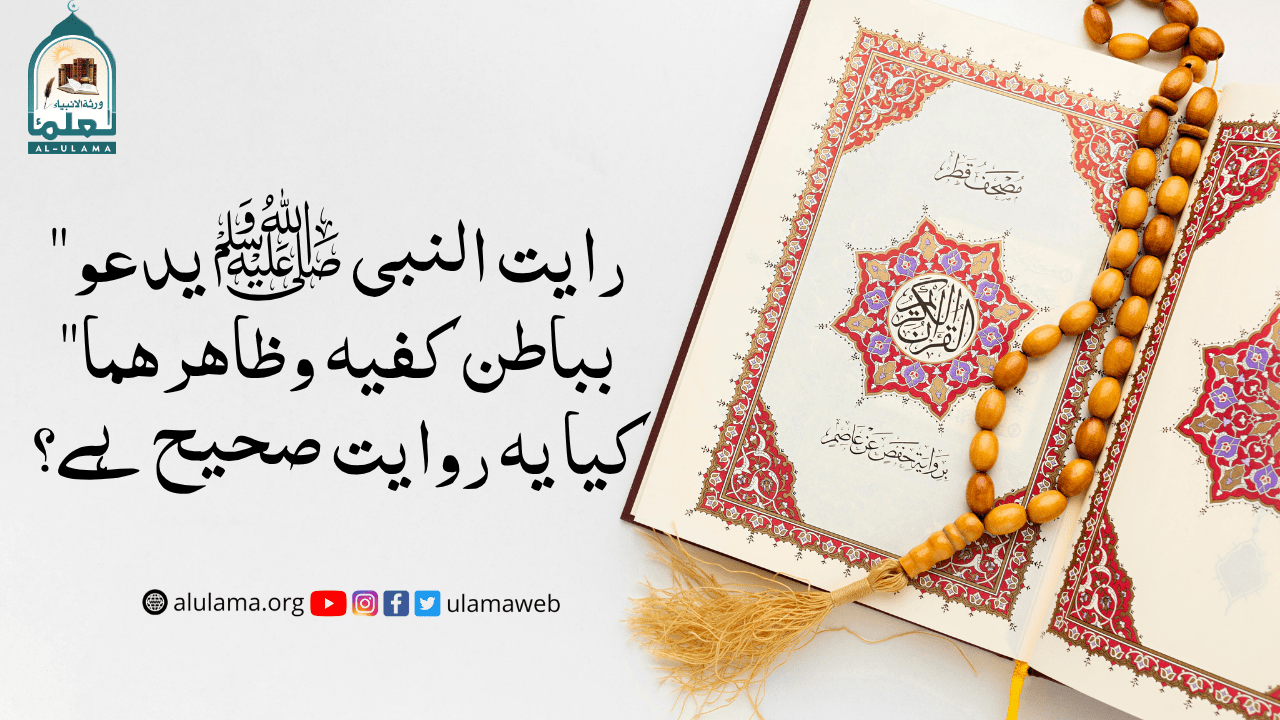 ورثة الانبياء
العلماء
AL-ULAMA
"رایت النبی ﷺ یدعو
بباطن کفیه وظاهر هما"
کیا یہ روایت صحیح ہے؟
alulama.org ulamaweb
مُصْحَفُ قَطَر
القرآن الكريم
بِرِوَايَةِ حَفْصٍ عَنْ عَاصِمٍ